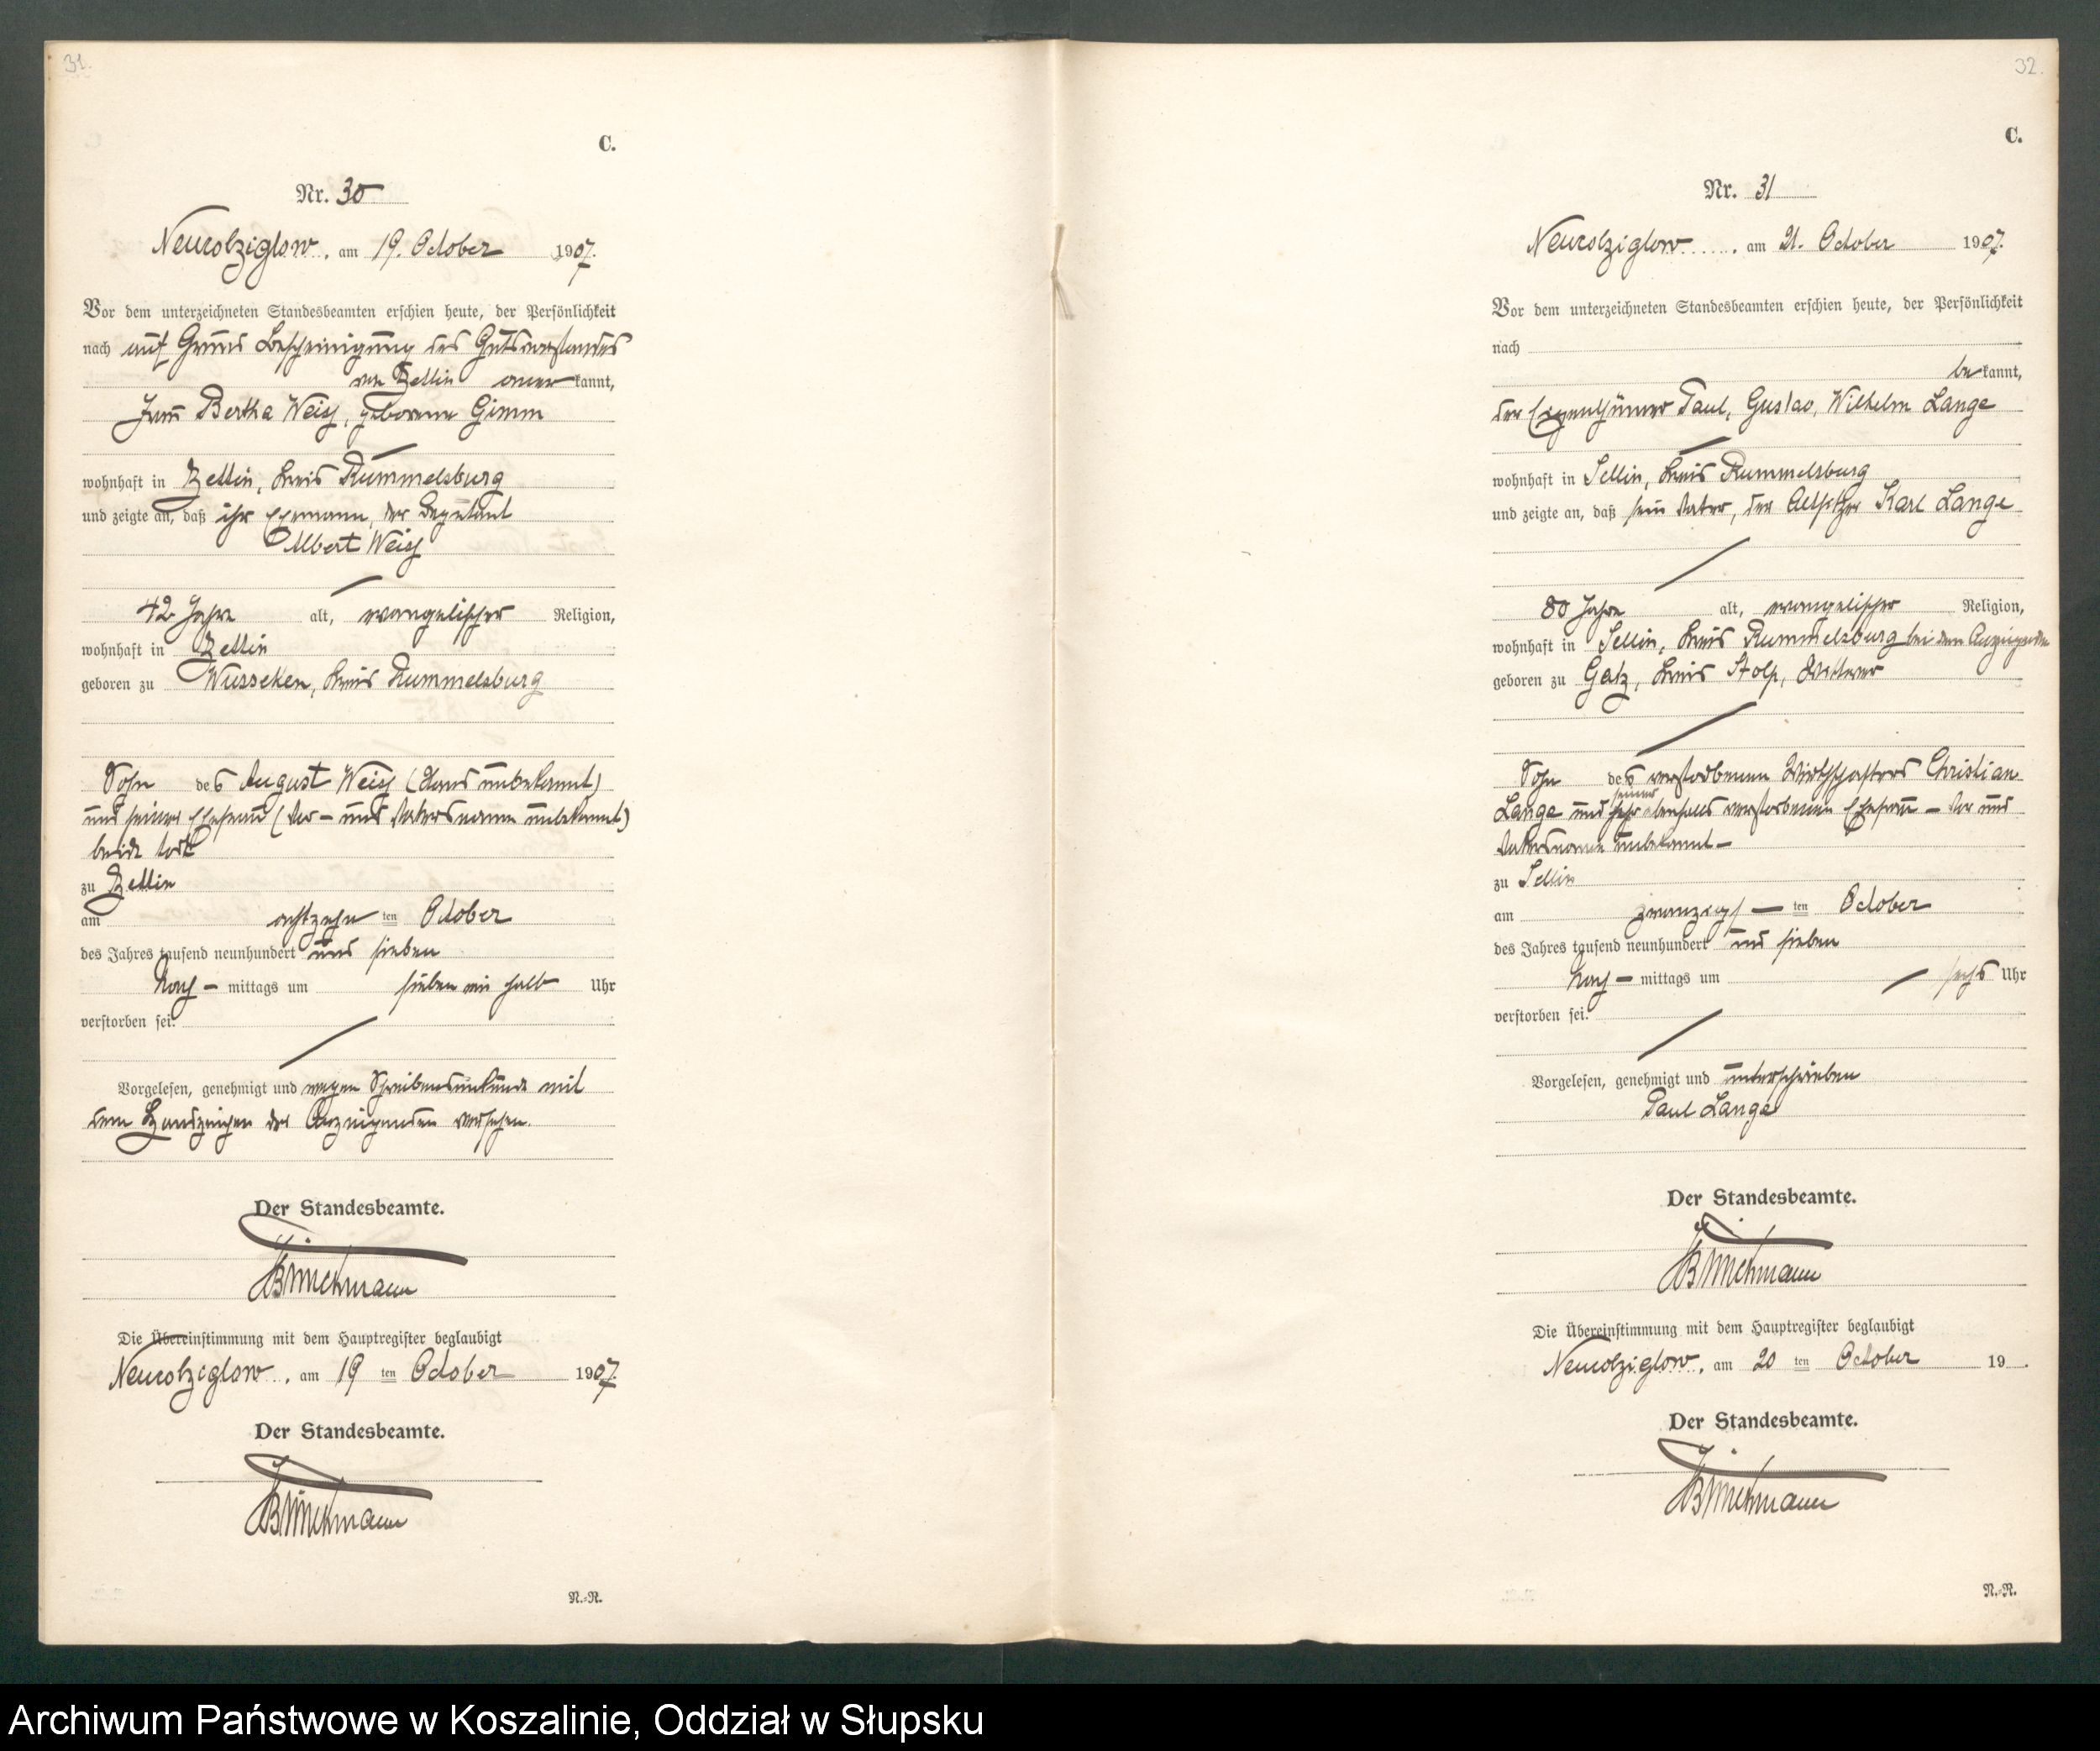 31.
C.
Nr. 30
Neukolziglow, am 19. October 1907.
Vor dem unterzeichneten Standesbeamten erschien heute, der Persönlichkeit
nach auf Grund Bescheinigung des Gutsvorstandes
von Zettin anerkannt,
Frau Bertha Weiß, geborene Gimm
wohnhaft in Zettin, Kreis Rummelsburg
und zeigte an, daß ihr Ehemann, der Deputant
Albert Weiß
42 Jahre alt, evangelischer Religion,
wohnhaft in Zettin
geboren zu Wusseken, Kreis Rummelsburg
Sohn des August Weiß (Stand unbekannt)
und seiner Ehefrau (Vor- und Vatersname unbekannt)
beide todt
zu Zettin
am achtzehnten October
des Jahres tausend neunhundert und sieben
Nach-mittags um sieben ein halb Uhr
verstorben sei.
Vorgelesen, genehmigt und wegen Schreibensunkunde mit
dem Handzeichen der Anzeigenden versehen.
Der Standesbeamte.
Die Übereinstimmung mit dem Hauptregister beglaubigt
Neukolziglow, am 19 ten October 1907.
Der Standesbeamte.
N.=R.
32.
C.
Nr. 31
Neukolziglow, am 21. October 1907.
Vor dem unterzeichneten Standesbeamten erschien heute, der Persönlichkeit
nach
bekannt,
der Eigenthümer Paul, Gustav, Wilhelm Lange
wohnhaft in Sellin, Kreis Rummelsburg
und zeigte an, daß sein Vater, der Altsitzer Karl Lange
80 Jahre alt, evangelischer Religion,
wohnhaft in Sellin, Kreis Rummelsburg bei dem Anzeigenden
geboren zu Gatz, Kreis Stolp, Wittwer
Sohn des verstorbenen Wirthschafters Christian
Lange und seiner ebenfalls verstorbenen Ehefrau - Vor und
Vatersname unbekannt -
zu Sellin
am zwanzigs-ten October
des Jahres tausend neunhundert und sieben
Nach-mittags um sechs Uhr
verstorben sei.
Vorgelesen, genehmigt und unterschrieben
Paul Lange
Der Standesbeamte.
Die Übereinstimmung mit dem Hauptregister beglaubigt
Neukolziglow, am 20 ten October 19 .
Der Standesbeamte.
N.=R.
Archiwum Państwowe w Koszalinie, Oddział w Słupsku